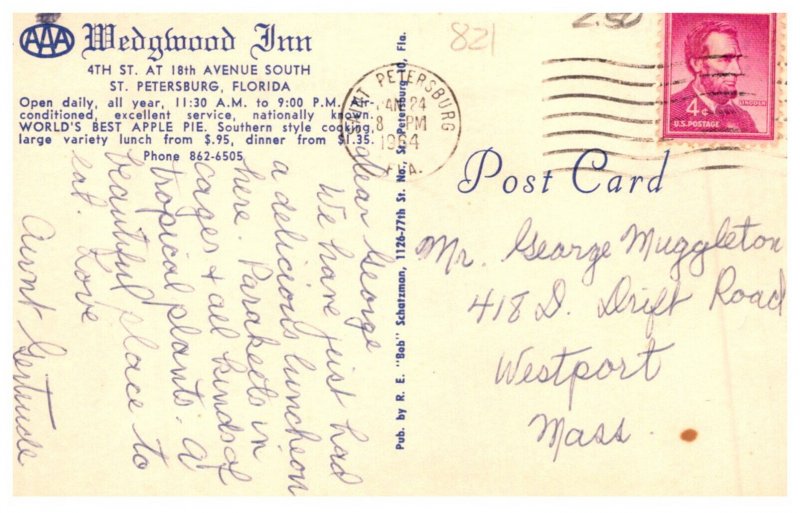 AAA Wedgwood Inn
4TH ST. AT 18th AVENUE SOUTH
ST. PETERSBURG, FLORIDA
Open daily, all year, 11:30 A.M. to 9:00 P.M. Air-
conditioned, excellent service, nationally known.
WORLD'S BEST APPLE PIE. Southern style cooking,
large variety lunch from $.95, dinner from $1.35.
Phone 862-6505
Dear George
We have just had
a delicious luncheon
here. Parakeets in
cages & all kinds of
tropical plants. A
beautiful place to
eat. Love
Aunt Gertrude
Pub. by R. E. "Bob" Schatzman, 1126-77th St. No., St. Petersburg 10, Fla.
821
2.50
SAINT PETERSBURG
JAN 24
8 PM
1964
FLA.
4¢
LINCOLN
U.S. POSTAGE
Post Card
Mr. George Muggleton
418 D. Drift Road
Westport
Mass.